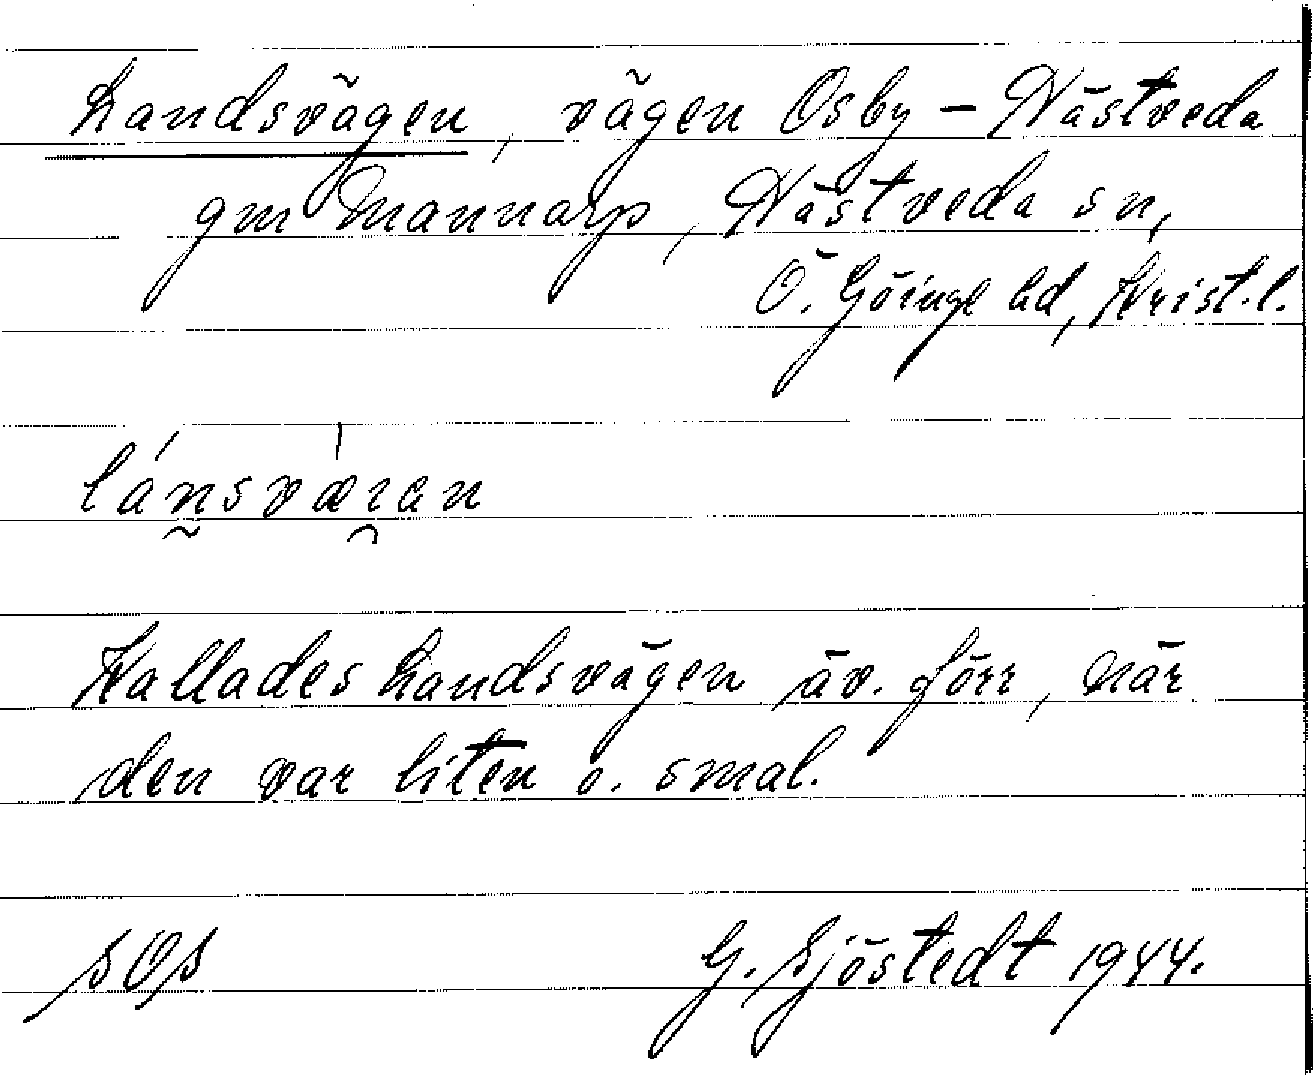 Landsvägen, vägen Osby – Hästveda
gm Mannarp, Hästveda sn,
Ö. Göinge hd, Krist. l.
lánsværan
Kallades Landsvägen äv. förr, när
den var liten o. smal.
SOS
G. Sjöstedt 1944.